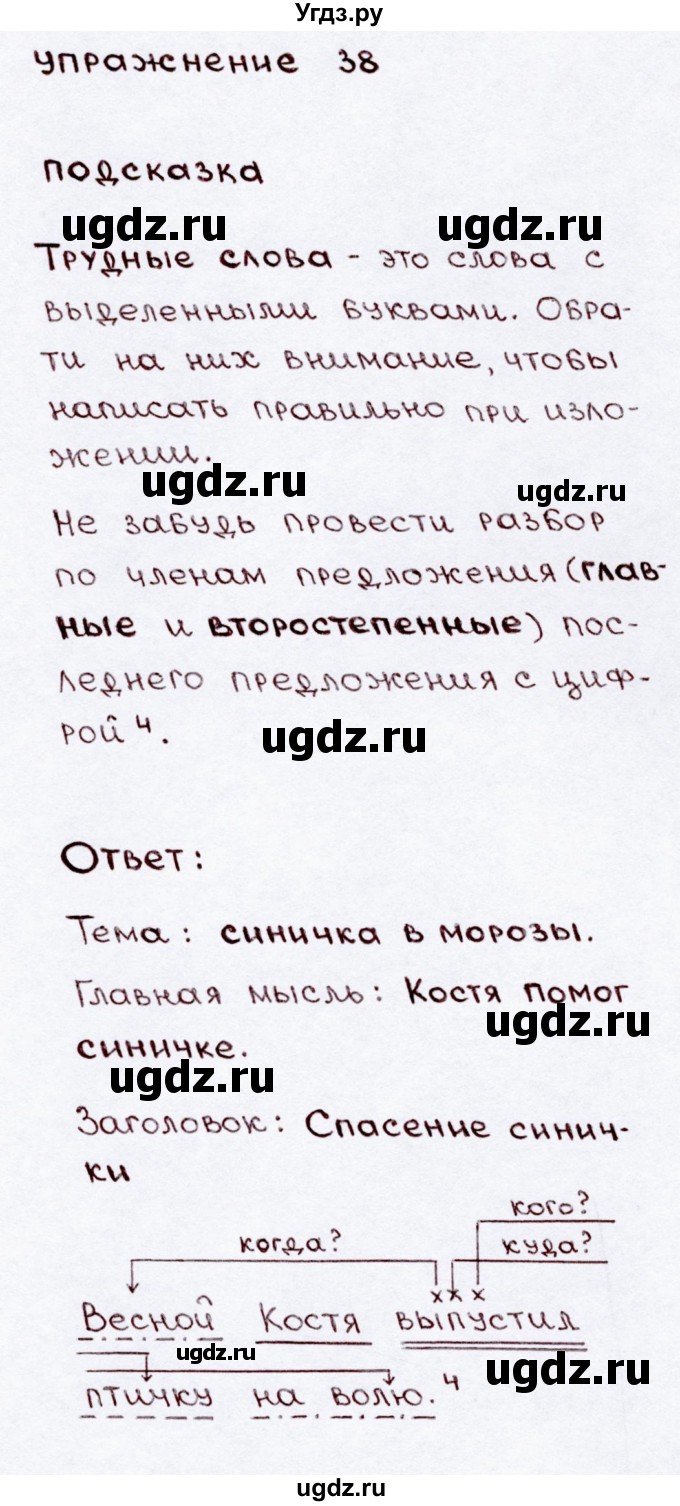 Угдз.ру
упражнение 38
подсказка
ugdz.ru ugdz.ru
Трудные слова - это слова с
выделенными буквами. Обра-
ти на них внимание, чтобы
написать правильно при изло-
жении.
ugdz.ru ugdz.ru
Не забудь провести разбор
по членам предложения (глав-
ные и второстепенные) пос-
леднего предложения с циф-
рой 4.
ugdz.ru
Ответ:
Тема: синичка в морозы.
Главная мысль: Костя помог
ugdz.ru
синичке.
ugdz.ru
Заголовок: Спасение синич-
ки
кого?
когда? куда?
х х х
Весной Костя выпустил
ugdz.ru ugdz.ru
птичку на волю. 4
ugdz.ru